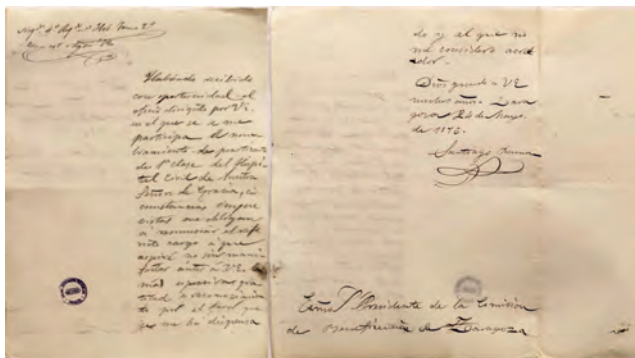 Habiendo recibido
con oportunidad el
oficio dirigido por V.E.
en el que se me
participa el nom-
bramiento de practicante
de 1ª clase del Hospi-
tal Civil de Nuestra
Señora de Gracia, cir
cunstancias impre
vistas me obligan
á renunciar el
cargo á que
aspiré no sin mani
festar ántes á V.E. la
mas espresiva gra
titud y reconocimien
to por el favor que
me ha dispensa
do y al que no
me considero acree
dor.
Dios guarde á VE
muchos años. Zara
goza 24 de Mayo
de 1873.
Santiago Ramon
Exmo Sr Presidente de la Comisión
de Beneficencia de Zaragoza